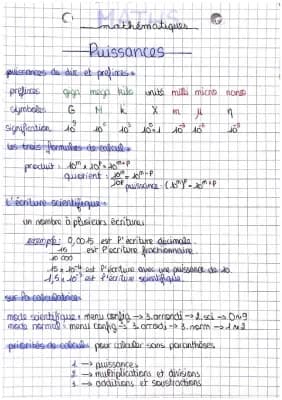 MATHS
mathématiques
Puissances
puissances de dix et préfixes :
préfixes giga mega kilo unité milli micro nano
symboles G M k X m μ η
signification 10⁹ 10⁶ 10³ 10⁰=1 10⁻³ 10⁻⁶ 10⁻⁹
les trois formules de calcul :
produit : 10ᵐ × 10ᵖ = 10ᵐ⁺ᵖ
quotient : 10ᵐ/10ᵖ = 10ᵐ⁻ᵖ
puissance : (10ᵐ)ᵖ = 10ᵐ×ᵖ
L'écriture scientifique :
un nombre à plusieurs écritures
exemple : 0,0015 est l'écriture décimale.
15/10 000 est l'écriture fractionnaire.
15 × 10⁻⁴ est l'écriture avec une puissance de 10.
1,5 × 10⁻³ est l'écriture scientifique.
sur la calculatrice :
mode scientifique : menu config → 3.arrondi → 2.sci → 0~9
mode normal : menu config → 3.arrondi → 3.norm → 1~2
priorités de calculs pour calculer sans parenthèses
1 → puissances
2 → multiplications et divisions
3 → additions et soustractions